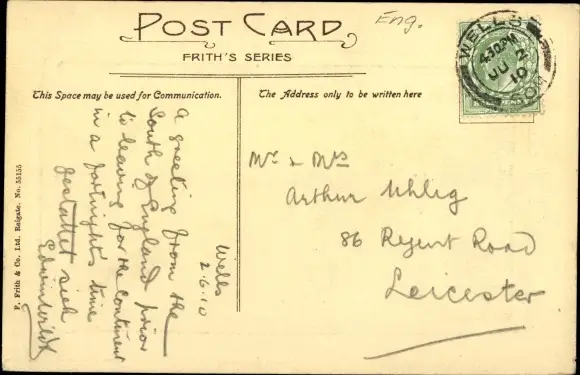 POST CARD
FRITH'S SERIES
Eng.
WELLS
4.30PM
JU 2
10
SOM
This Space may be used for Communication.
The Address only to be written here
Wells
2.6.10
A greeting from the
South of England prior
to leaving for the continent
in a fortnight's time
gestattet sich
Mr & Mrs
Arthur Uhlig
86 Regent Road
Leicester
F. Frith & Co. Ltd. Reigate. No. 55155